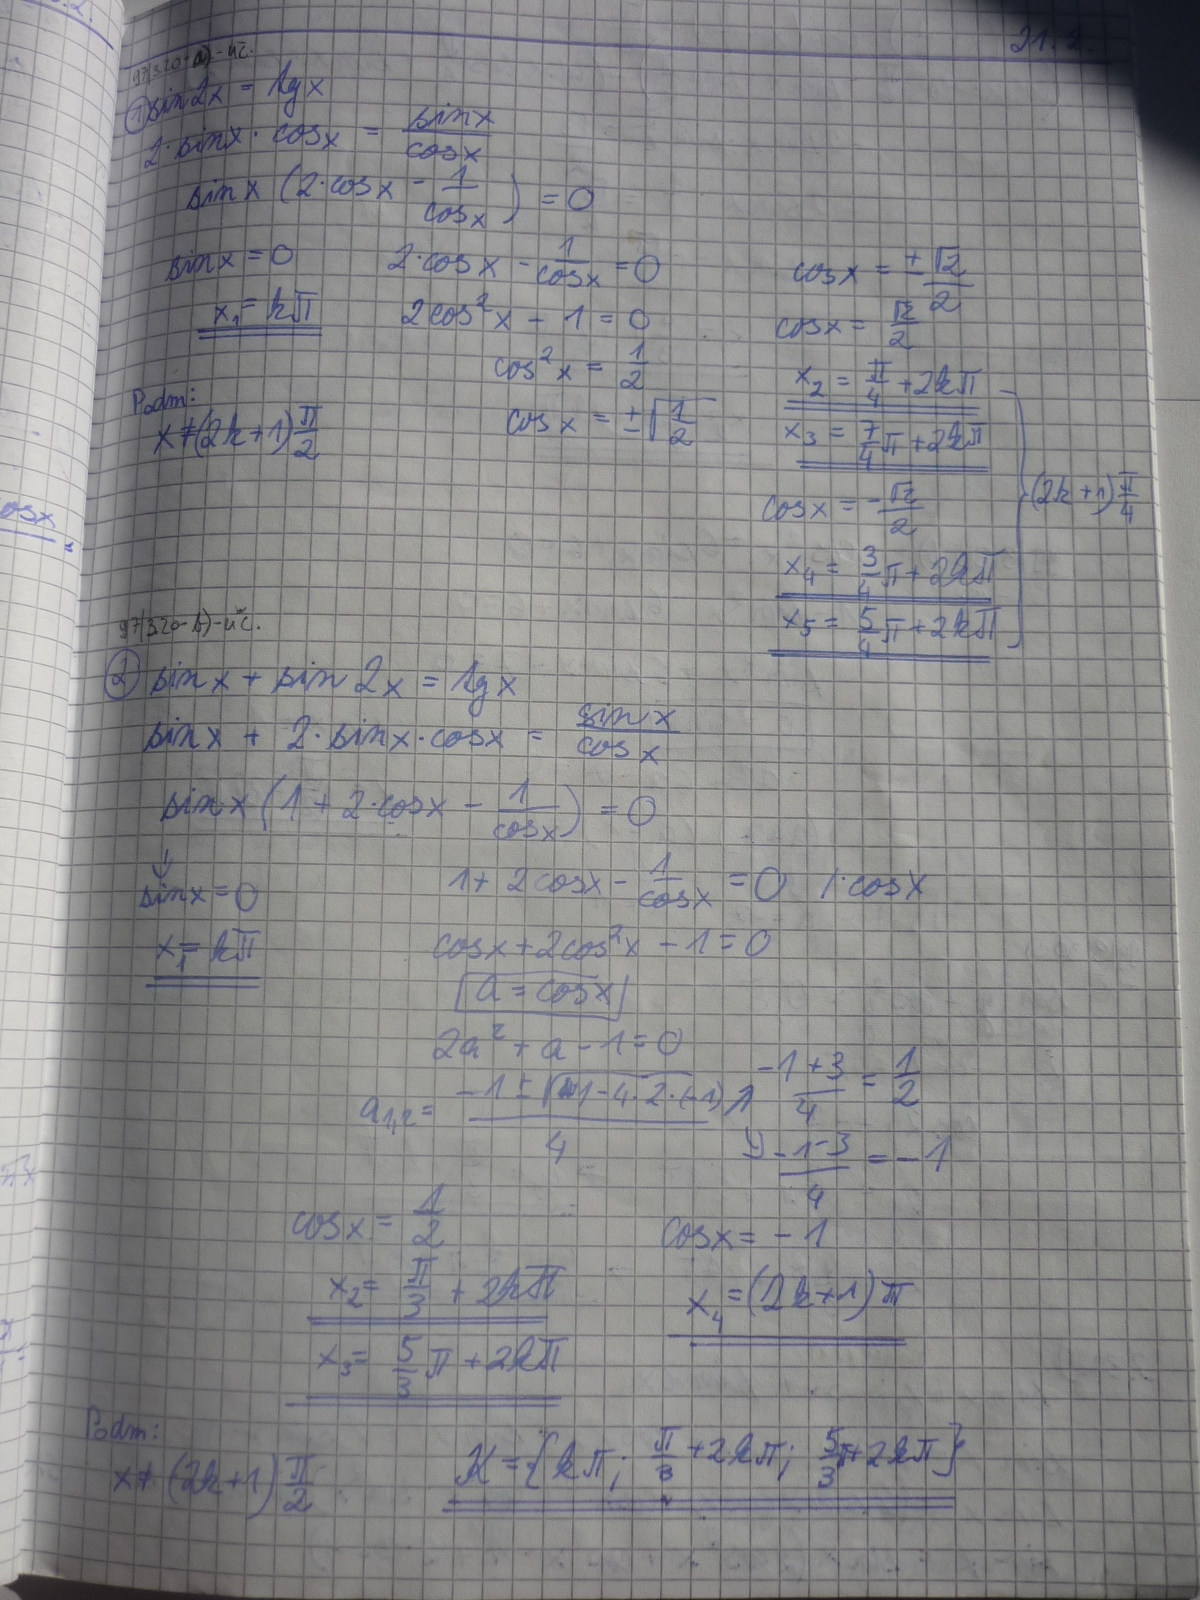 21.2.
97/3.20-a)-uč.
① sin2x = tgx
2·sinx·cosx = sinx/cosx
sinx (2·cosx - 1/cosx) = 0
sinx = 0
x₁ = kπ
2·cosx - 1/cosx = 0
2cos²x - 1 = 0
cos²x = 1/2
cosx = ±√(1/2)
cosx = ±√2/2
cosx = √2/2
x₂ = π/4 + 2kπ
x₃ = 7/4 π + 2kπ
cosx = -√2/2
x₄ = 3/4 π + 2kπ
x₅ = 5/4 π + 2kπ
(2k+1) π/4
Podm:
x ≠ (2k+1) π/2
97/3.20-b)-uč.
② sinx + sin2x = tgx
sinx + 2·sinx·cosx = sinx/cosx
sinx (1 + 2·cosx - 1/cosx) = 0
sinx = 0
x₁ = kπ
1 + 2cosx - 1/cosx = 0 /·cosx
cosx + 2cos²x - 1 = 0
a = cosx
2a² + a - 1 = 0
a₁,₂ = (-1 ± √(1-4·2·(-1)))/4
(-1+3)/4 = 1/2
(-1-3)/4 = -1
cosx = 1/2
x₂ = π/3 + 2kπ
x₃ = 5/3 π + 2kπ
cosx = -1
x₄ = (2k+1)π
Podm:
x ≠ (2k+1) π/2
K = {kπ; π/3 + 2kπ; 5/3 π + 2kπ}